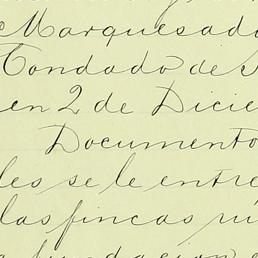 Marquesad
Condado de S
en 2 de Dicie
Documento
les se le entre
las fincas rú
a fundacion